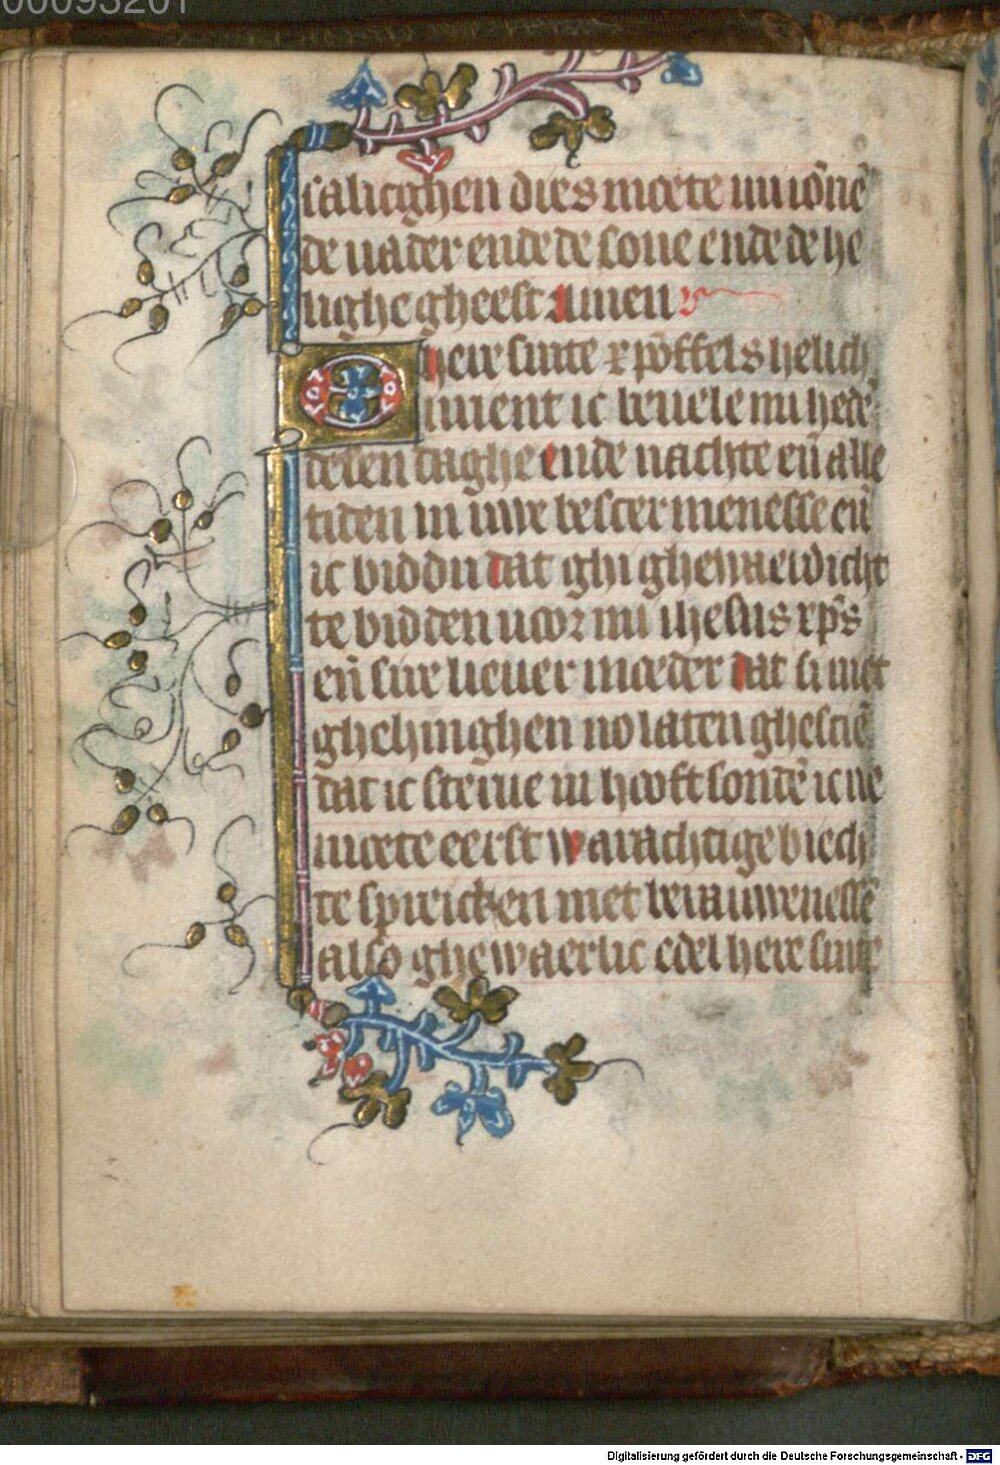 00093201
salicghen dies moete mi iōnē
de vader ende de sone ende de he
lighe gheest Amen
O here sinte xp̄offels helich
iment ic bevele mi hedē
desen daghe ende nachte eñ alle
tiden in uwe bescermenesse eñ
ic biddu dat ghi ghewaerdicht
te bidden voor mi ihesus xp̄s
eñ sire liever moeder dat si niet
ghehinghen no laten ghesciē
dat ic sterve in hooftsondē ic ne
moete eerst warachtige biech
te spreicken met berauwenessē
also ghewaerlic edel here sinte
Digitalisierung gefördert durch die Deutsche Forschungsgemeinschaft - DFG